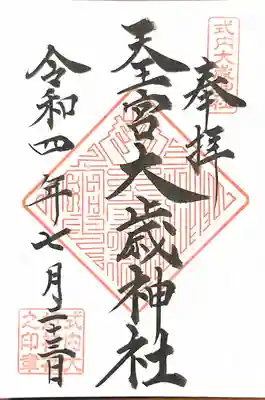 奉拝
天宮大歳神社
令和四年七月二十三日
式内大歳神社
式内大
之印章